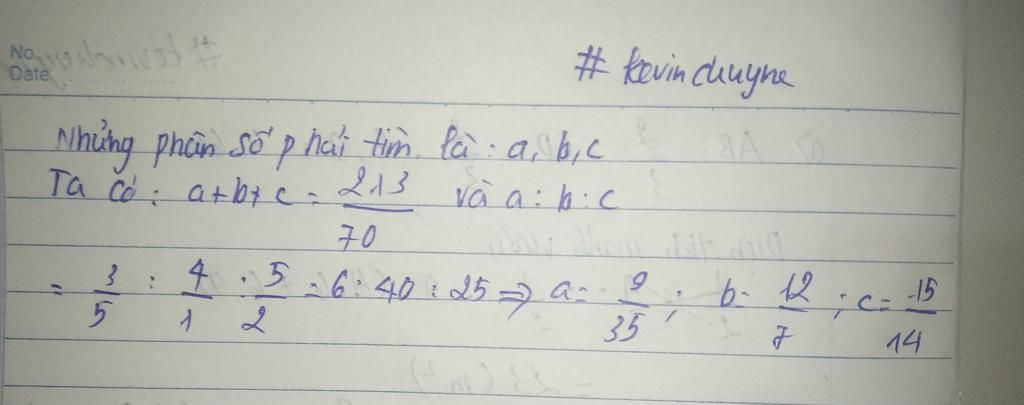 No.
Date
# kevinchuyne
Những phân số phải tìm là : a, b, c
Ta có : a + b + c = 213/70 và a : b : c
= 3/5 : 4/1 : 5/2 = 6 : 40 : 25 => a = 9/35 ; b = 12/7 ; c = 15/14